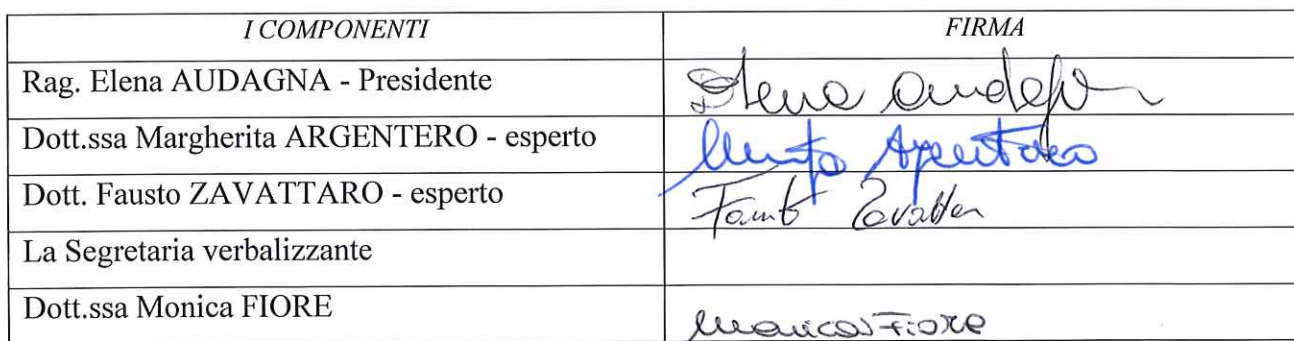 I COMPONENTI FIRMA
Rag. Elena AUDAGNA - Presidente Elena
Dott.ssa Margherita ARGENTERO - esperto
Dott. Fausto ZAVATTARO - esperto
La Segretaria verbalizzante
Dott.ssa Monica FIORE Monica Fiore